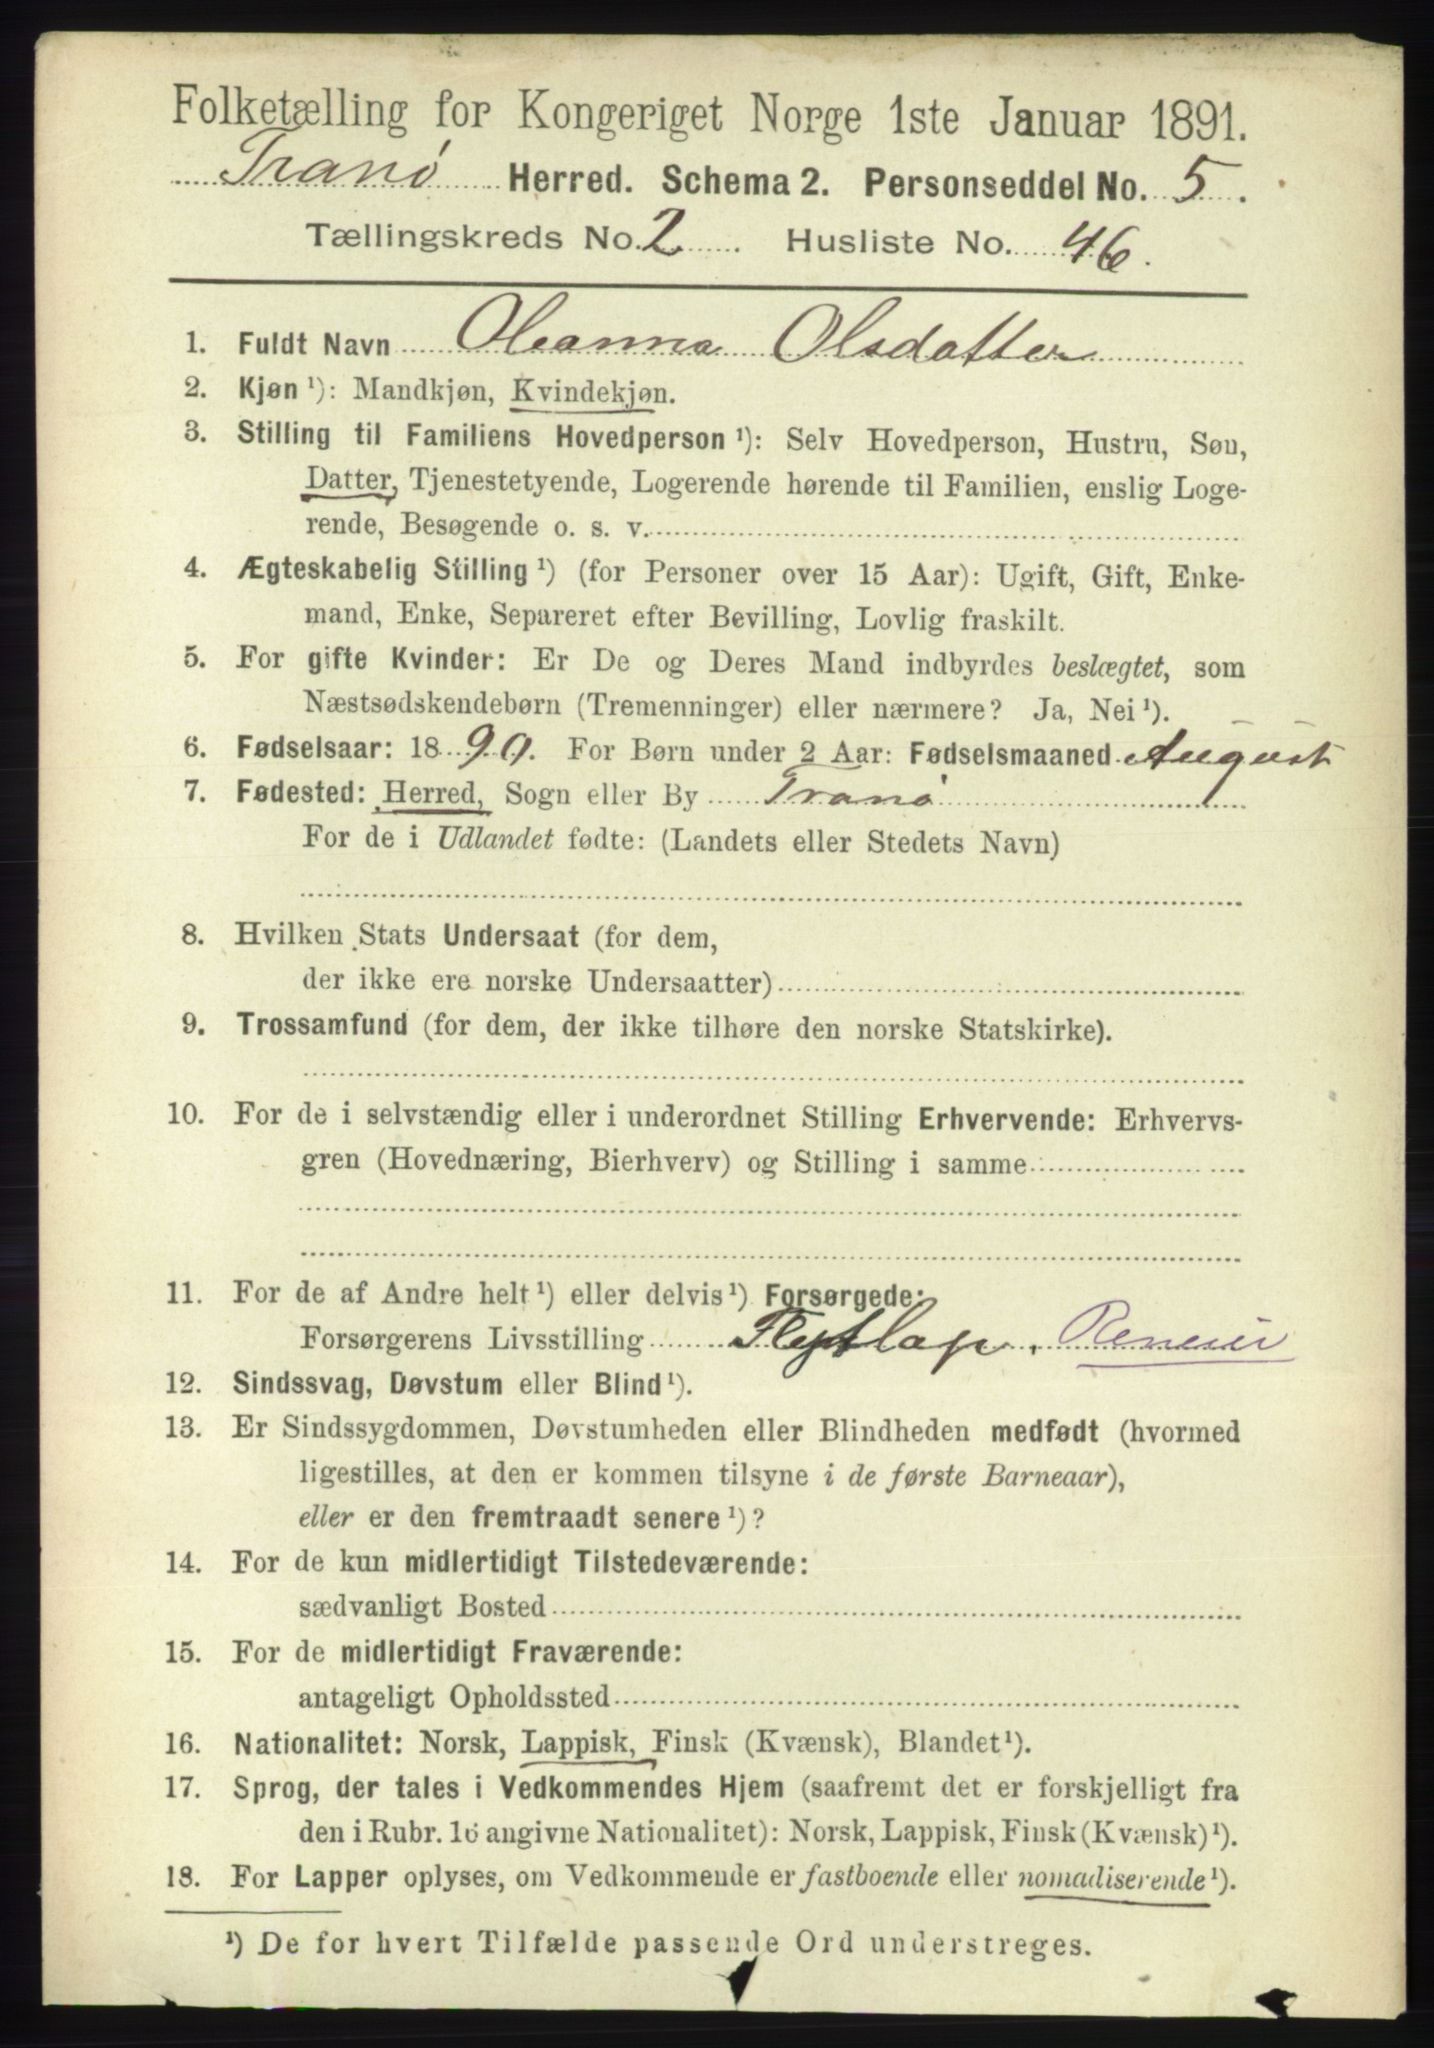 Folketælling for Kongeriget Norge 1ste Januar 1891.
Tranö Herred. Schema 2. Personseddel No. 5.
Tællingskreds No. 2. Husliste No. 46.
1. Fuldt Navn Oleanna Olsdatter
2. Kjøn ¹): Mandkjøn, Kvindekjøn.
3. Stilling til Familiens Hovedperson ¹): Selv Hovedperson, Hustru, Søn,
Datter, Tjenestetyende, Logerende hørende til Familien, enslig Loge-
rende, Besøgende o. s. v.
4. Ægteskabelig Stilling ¹) (for Personer over 15 Aar): Ugift, Gift, Enke-
mand, Enke, Separeret efter Bevilling, Lovlig fraskilt.
5. For gifte Kvinder: Er De og Deres Mand indbyrdes beslægtet, som
Næstsødskendebørn (Tremenninger) eller nærmere? Ja, Nei ¹).
6. Fødselsaar: 1890. For Børn under 2 Aar: Fødselsmaaned August
7. Fødested: Herred, Sogn eller By Tranö
For de i Udlandet fødte: (Landets eller Stedets Navn)
8. Hvilken Stats Undersaat (for dem,
der ikke ere norske Undersaatter)
9. Trossamfund (for dem, der ikke tilhøre den norske Statskirke).
10. For de i selvstændig eller i underordnet Stilling Erhvervende: Erhvervs-
gren (Hovednæring, Bierhverv) og Stilling i samme
11. For de af Andre helt ¹) eller delvis ¹) Forsørgede:
Forsørgerens Livsstilling Flytlap. Reneier
12. Sindssvag, Døvstum eller Blind ¹).
13. Er Sindssygdommen, Døvstumheden eller Blindheden medfødt (hvormed
ligestilles, at den er kommen tilsyne i de første Barneaar),
eller er den fremtraadt senere ¹)?
14. For de kun midlertidigt Tilstedeværende:
sædvanligt Bosted
15. For de midlertidigt Fraværende:
antageligt Opholdssted
16. Nationalitet: Norsk, Lappisk, Finsk (Kvænsk), Blandet ¹).
17. Sprog, der tales i Vedkommendes Hjem (saafremt det er forskjelligt fra
den i Rubr. 16 angivne Nationalitet): Norsk, Lappisk, Finsk (Kvænsk) ¹).
18. For Lapper oplyses, om Vedkommende er fastboende eller nomadiserende ¹).
¹) De for hvert Tilfælde passende Ord understreges.